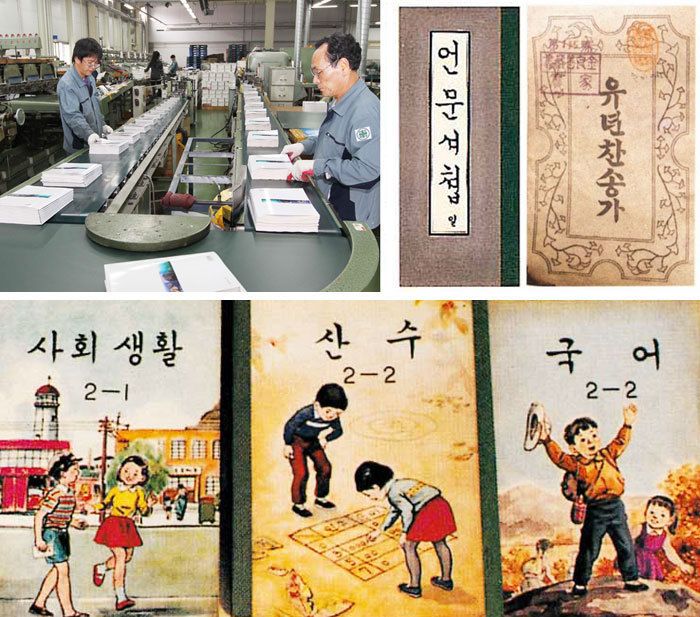 언
문
셔
첩
일
유년찬송가
사회 생활
2-1
산 수
2-2
국 어
2-2